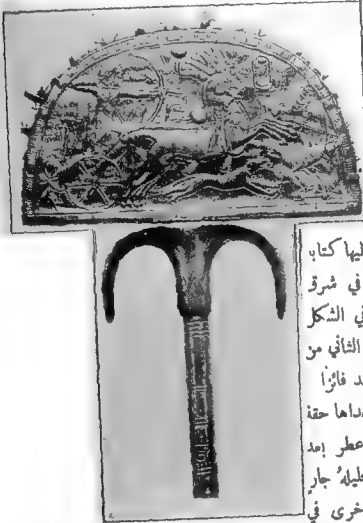 ليها كتاب
في شرق
في الشكل
الثاني من
فائزاً
حقة
عطر بعد
جار
خرى في